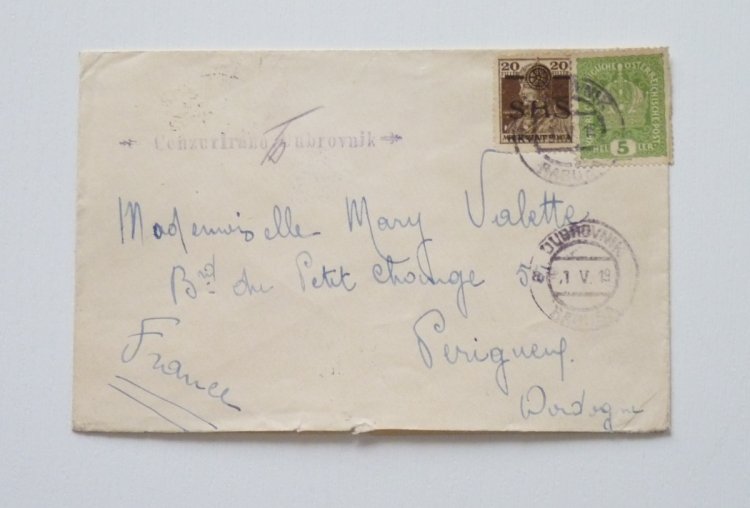 20 20
SHS
HRVATSKA
5
HELLER
Cenzurirano Dubrovnik
DUBROVNIK
1 V. 19
RAGUSA
Mademoiselle Mary Valette
Bd du Petit Change
Perigueux
Dordogne
France